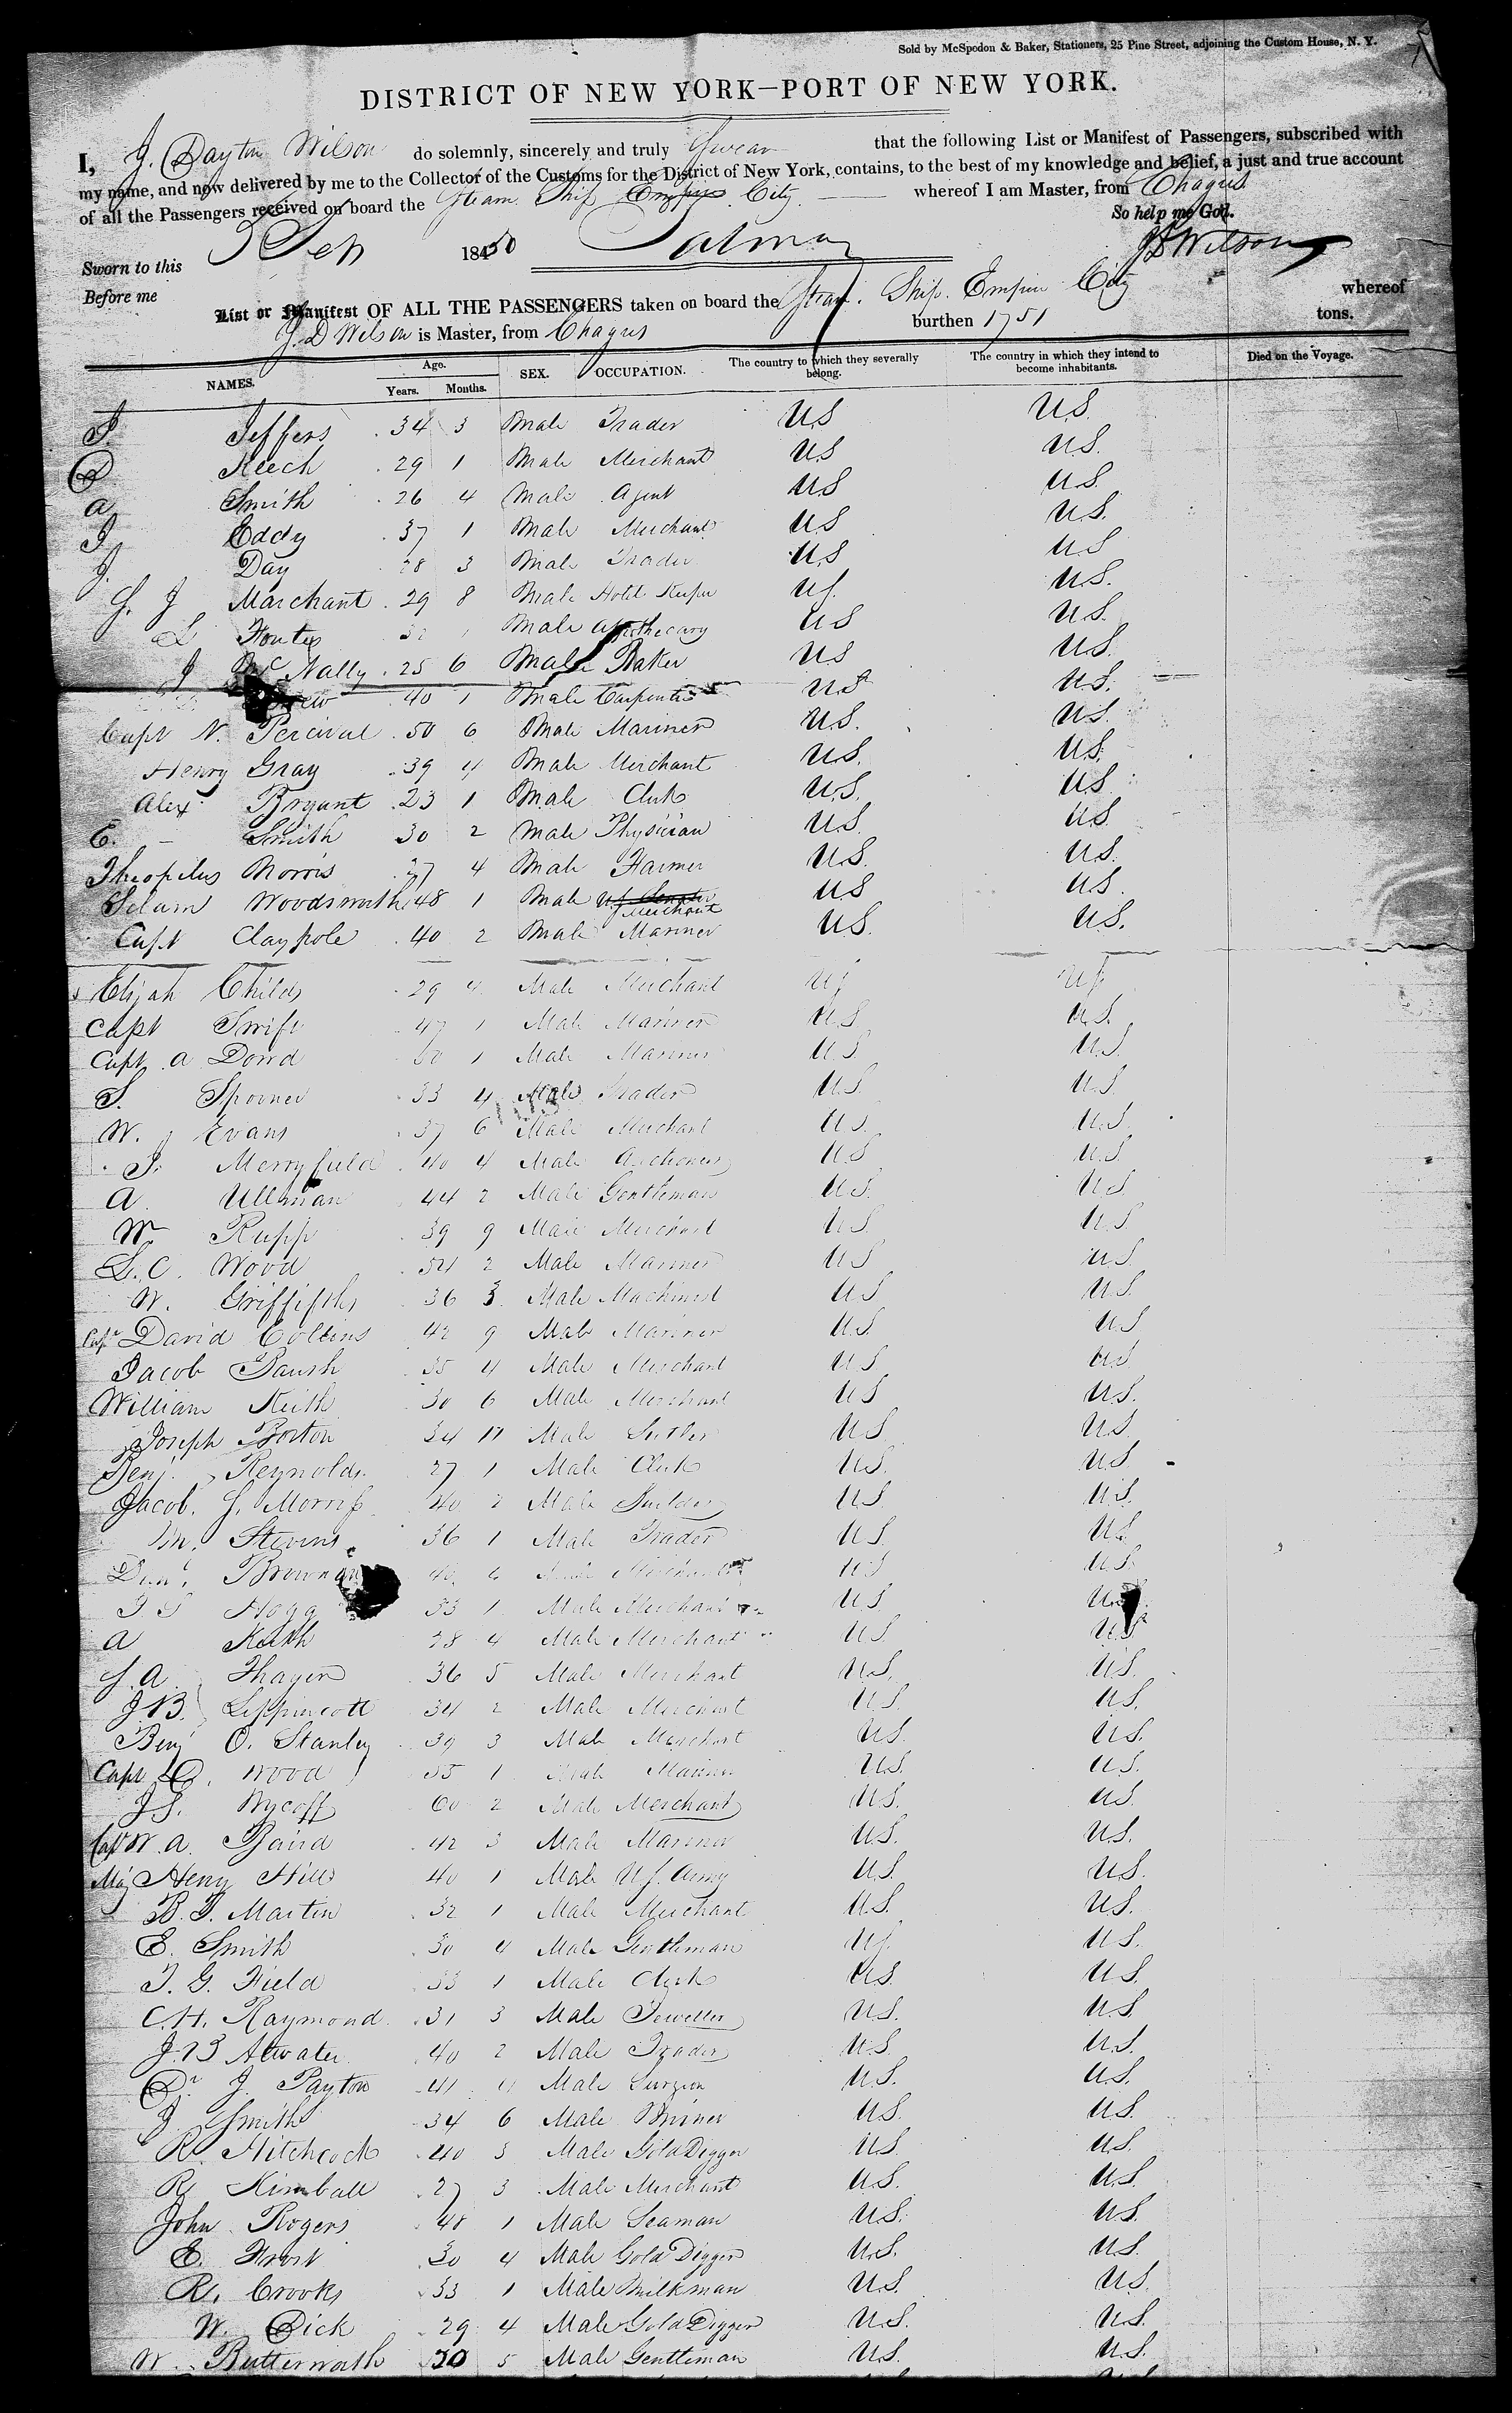 Sold by McSpedon & Baker, Stationers, 25 Pine Street, adjoining the Custom House, N. Y.
DISTRICT OF NEW YORK—PORT OF NEW YORK.
I, J. Dayton Wilson do solemnly, sincerely and truly Swear that the following List or Manifest of Passengers, subscribed with
my name, and now delivered by me to the Collector of the Customs for the District of New York, contains, to the best of my knowledge and belief, a just and true account
of all the Passengers received on board the Steam Ship Empire City whereof I am Master, from Chagres
So help me God.
Sworn to this 1850
J D Wilson
Before me
List or Manifest OF ALL THE PASSENGERS taken on board the Steam Ship Empire City whereof
J. D Wilson is Master, from Chagres burthen 1751 tons.
NAMES. Age. Years. Months. SEX. OCCUPATION. The country to which they severally belong. The country in which they intend to become inhabitants. Died on the Voyage.
Jeffers 34 3 Male Trader US U.S.
Keech 29 1 Male Merchant US U.S.
a Smith 26 4 Male Agent US U.S
Eddy 37 1 Male Merchant US U.S.
J. Day 28 3 Male Trader U.S U.S
S. J Marchant 29 8 Male Hotel Keeper US. U.S.
L 1 Male Apothecary US U.S.
J McNally 25 6 Male Baker US U.S.
40 1 Male Carpenter U.S U.S.
Capt N. Percival 50 6 Male Mariner U.S. U.S.
Henry Gray 39 4 Male Merchant U.S. U.S.
Alex Bryant 23 1 Male Clerk U.S. U.S
E. Smith 30 2 Male Physician U.S. U.S.
Theopilus Morris 27 4 Male Farmer U.S. U.S.
Woodsworth 48 1 Male US Senator Merchant US U.S.
Capt Claypole 40 2 Male Mariner U.S. U.S.
Elijah Childs 29 4 Male Merchant US US
Capt Swift 47 1 Male Mariner U.S U.S.
Capt a Dowd 1 Male Mariner U.S. U.S.
S. Spooner 33 4 Male Trader U.S U.S
W. Evans 37 6 Male Merchant U.S. U.S
Merryfield 40 4 Male U.S U.S
A. Ullman 44 2 Male Gentleman U.S. U.S
W Rupp 39 9 Male Merchant U.S U.S
S. C. Wood 2 Male Mariner U.S U.S.
W. Griffifths 36 3 Male Machinist U.S U.S.
Capt David Collins 42 9 Male Mariner U.S. U.S
Jacob 35 4 Male Merchant U.S U.S
William Keith 30 6 Male Merchant U.S U.S.
Joseph Borton 34 11 Male U.S. U.S.
Benj. Reynolds 27 1 Male Clerk U.S. U.S
Jacob. S. Morris 40 2 Male Builder U.S. U.S.
Stevens 36 1 Male Trader U.S. U.S.
Brownan 40 Merchant U.S U.S.
Hogg 33 1 Male Merchant U.S. U.S.
A Keith 28 4 Male Merchant U.S. U.S
S. A. Thayer 36 5 Male Merchant U.S. U.S.
J. B. Lippincott 34 2 Male Merchant U.S. U.S.
Benj O. Stanley 39 3 Male Merchant U.S. U.S.
Capt Wood 55 1 Male Mariner U.S. U.S.
J S. Wycoff 60 2 Male Merchant U.S. U.S
Capt W. a. Baird 42 3 Male Mariner U.S. U.S.
Maj Heny Hill 40 1 Male U.S. Army U.S. U.S.
B. T. Martin 32 1 Male Merchant U.S. U.S.
E. Smith 30 4 Male Gentleman US. U.S.
T. G. Field 33 1 Male Clerk U.S. U.S.
C. H. Raymond 31 3 Male Jeweller U.S. U.S.
J. B Atwater 40 2 Male Trader U.S. U.S.
Dr. J. Payton 41 Male Surgeon U.S. U.S.
J Smith 34 6 Male Miner U.S. U.S.
R. Hitchcock 40 3 Male Gold Digger U.S. U.S.
R Kimball 27 3 Male Merchant U.S. U.S.
John Rogers 48 1 Male Seaman U.S. U.S.
E. Frost 30 4 Male Gold Digger U.S. U.S.
R. Crooks 33 1 Male Milkman U.S. U.S.
W. Dick 29 4 Male Gold Digger U.S. U.S.
W. Butterworth 30 5 Male Gentleman U.S. U.S.